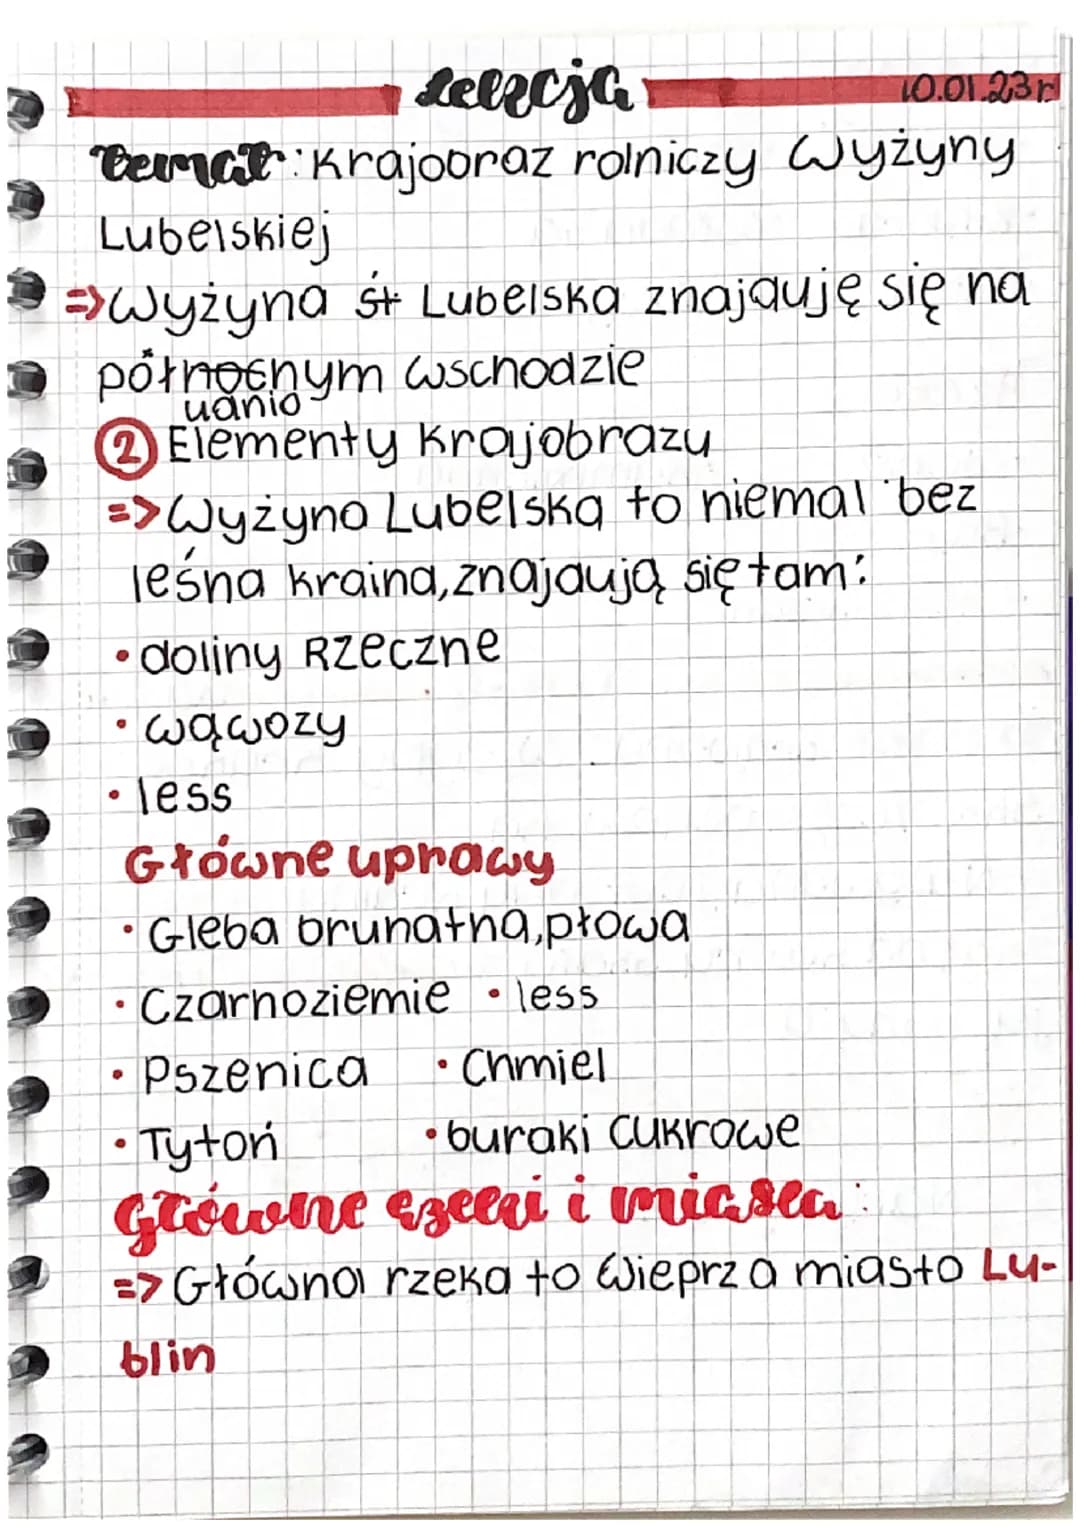 Lekcja 10.01.23r
Temat: Krajobraz rolniczy Wyżyny
Lubelskiej
=> Wyżyna śt Lubelska znajduję się na
północnym wschodzie
udnio
② Elementy krajobrazu
=> Wyżyna Lubelska to niemal bez
leśna kraina, znajdują się tam:
• doliny Rzeczne
• wąwozy
• less
Główne uprawy
• Gleba brunatna, płowa
• Czarnoziemie • less
• Pszenica • Chmiel
• Tytoń • buraki cukrowe
Główne rzeki i miasta:
=> Główna rzeka to Wieprz a miasto Lu-
blin